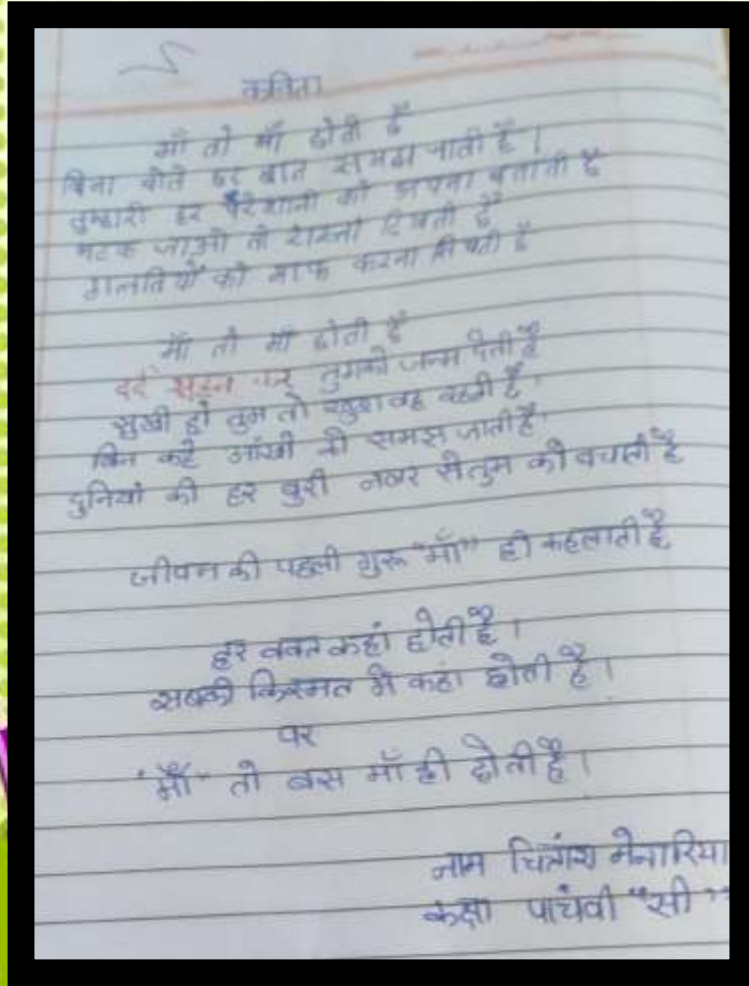 कविता
माँ तो माँ होती है
बिना बोले हर बात समझ जाती है ।
तुम्हारी हर परेशानी को अपना बनाती है
भटक जाओ तो रास्ता दिखाती है
गलतियों को माफ करना सिखाती है
माँ तो माँ होती है
दर्द सहन कर तुमको जन्म देती है
सुखी हो तुम तो खुश वह रहती है
बिन कहे आंखों को समझ जाती है।
दुनियां की हर बुरी नजर से तुम को बचाती है
जीवन की पहली गुरू "माँ" ही कहलाती है
हर वक्त कहां होती है ।
सबकी किस्मत में कहां होती है ।
पर
"माँ" तो बस माँ ही होती है ।
नाम चित्रांश मेनारिया
कक्षा पांचवी "सी"